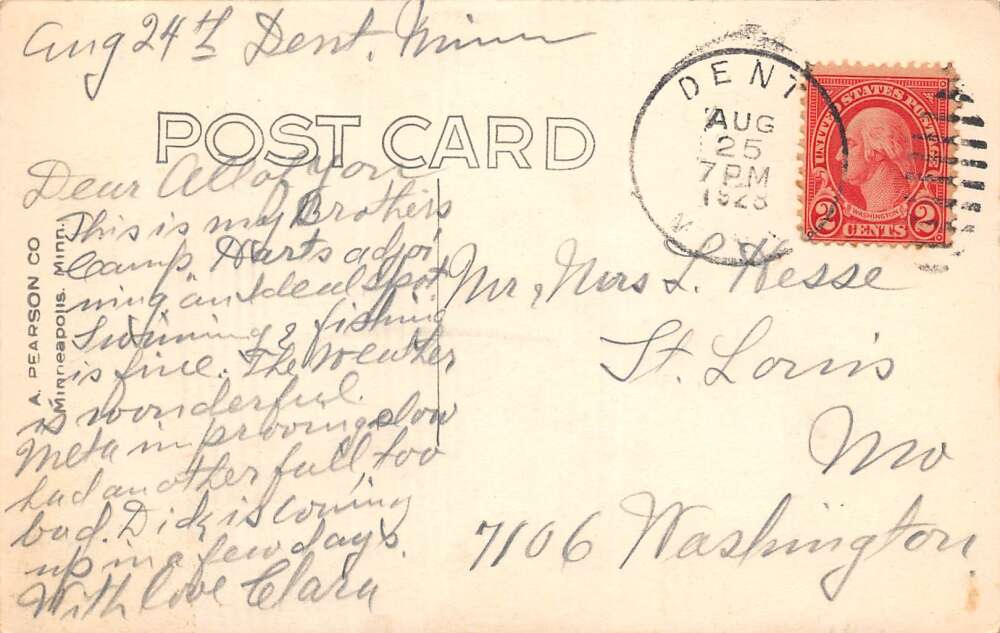 Aug 24th Dent, Minn
POST CARD
DENT
AUG
25
7 PM
1928
UNITED STATES POSTAGE
WASHINGTON
2 CENTS 2
Dear All of You
This is my Brothers
Camp. Harts adjoi
ning an Ideal spot
Swiming & fishing
is fine. The Weather
is wonderful.
Meta improving slow
had another fall too
bad. Dick is coming
up in a few days.
With love Clara
A. PEARSON CO
Minneapolis. Minn.
Mr, Mrs L. Hesse
St. Louis
Mo
7106 Washington